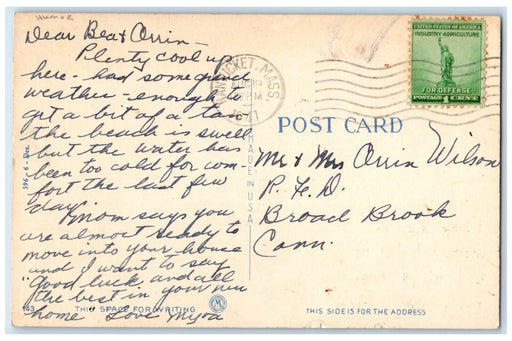 Humor
Dear Bea & Orrin –
Plenty cool up
here – had some grand
weather – enough to
get a bit of a tan
the beach is swell
but the water has
been too cold for com-
fort the last few
days.
Mom says you
are almost ready to
move into your house
and I want to say
"Good luck and all
the best in your new
home" Love Myra
143 THIS SPACE FOR WRITING
MADE IN U.S.A.
NANTUCKET, MASS.
PM
UNITED STATES OF AMERICA
INDUSTRY AGRICULTURE
FOR DEFENSE
POSTAGE 1 CENT
POST CARD
Mr & Mrs Orrin Wilson
R. F. D.
Broad Brook
Conn.
THIS SIDE IS FOR THE ADDRESS